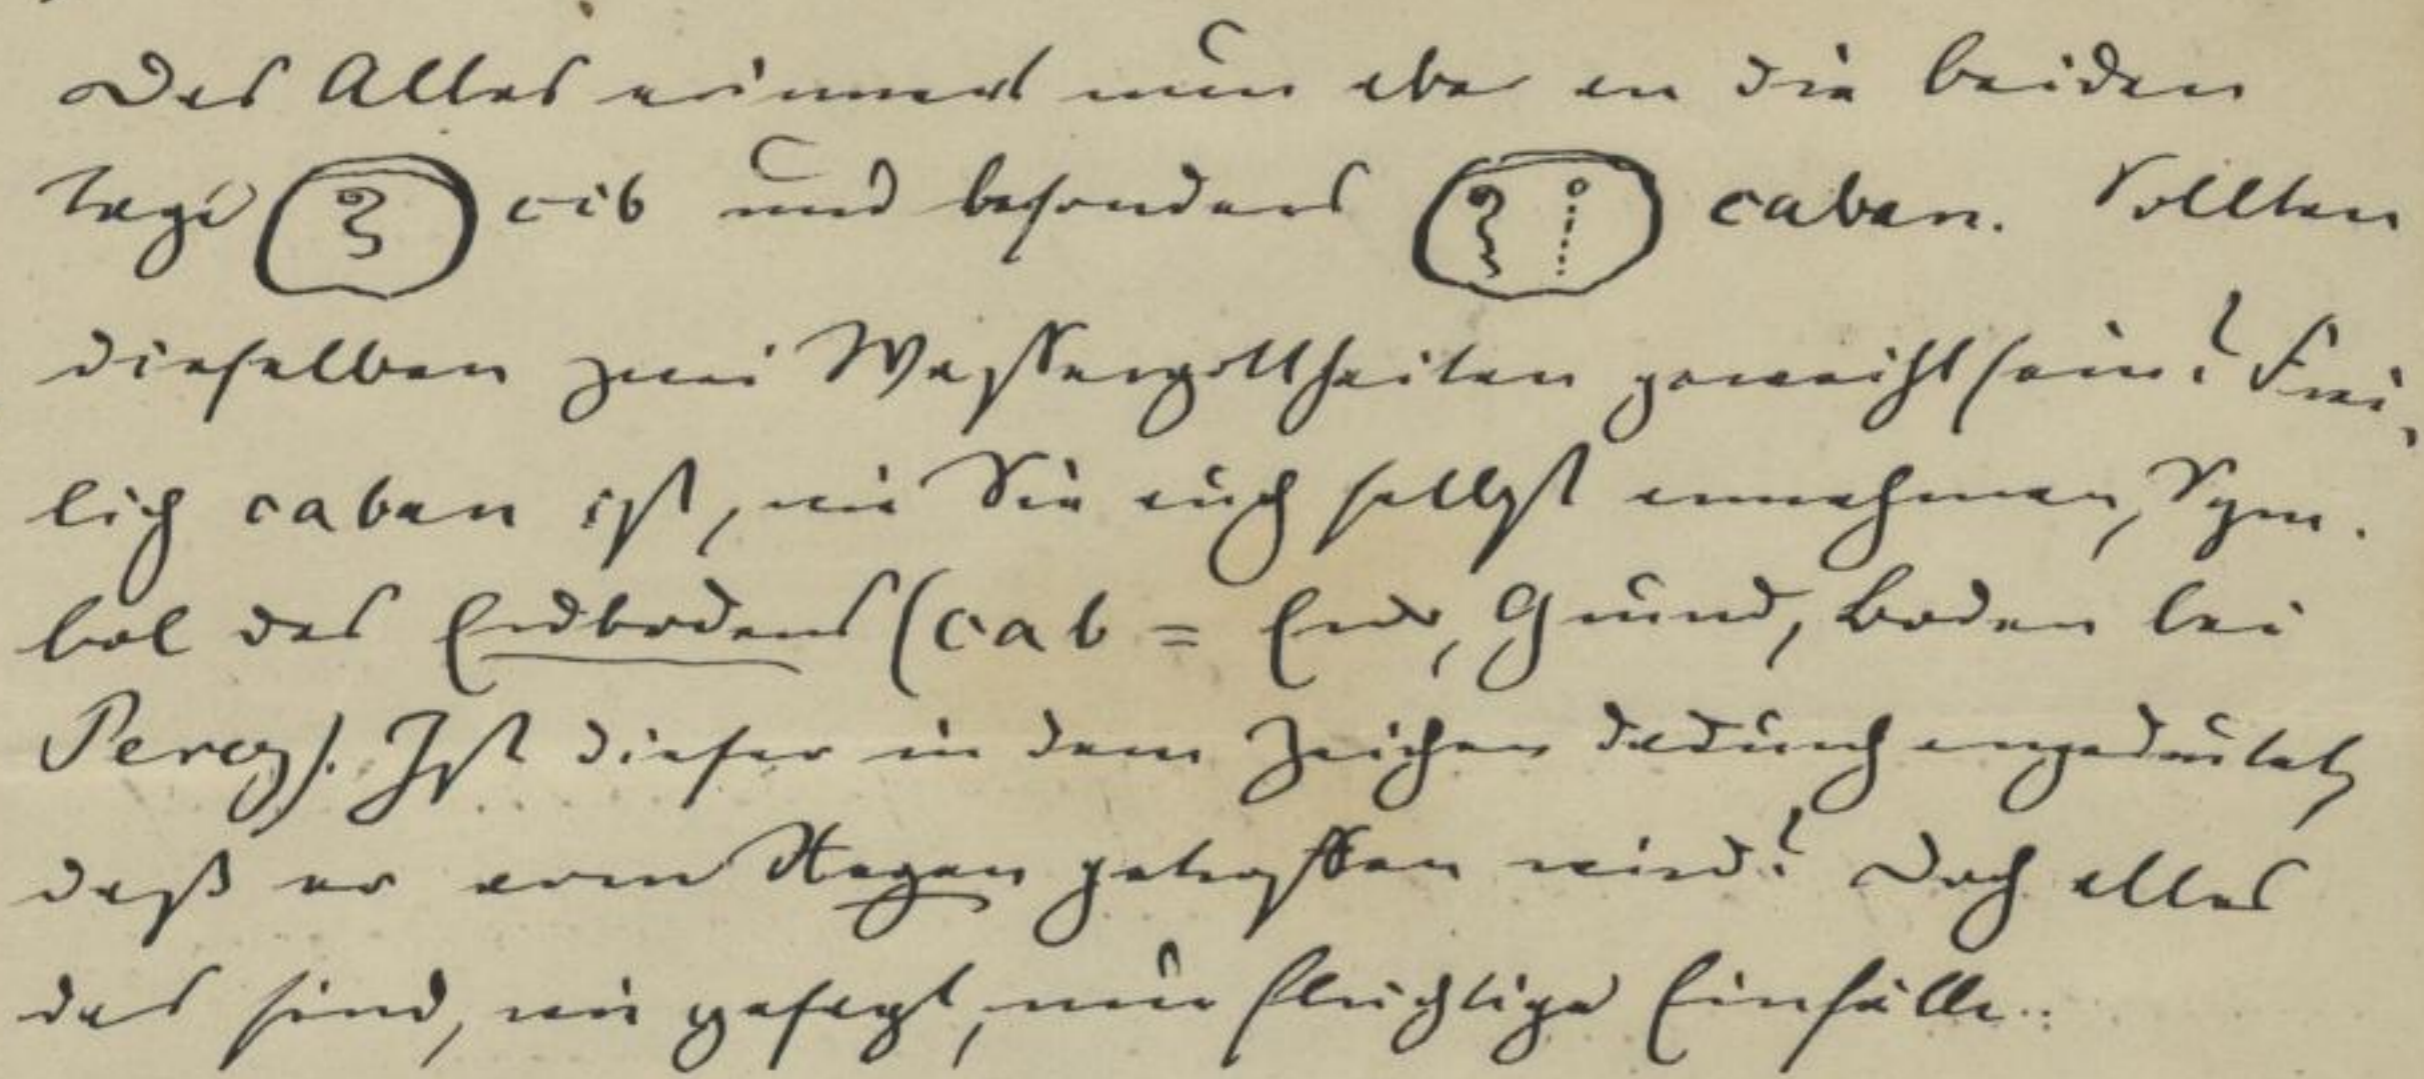 Das Alles erinnert nun aber an die beiden
Tage cib und besonders caban. Sollten
dieselben zwei Wassergottheiten geweiht sein? Frei-
lich caban ist, wie Sie auch selbst annehmen, Sym-
bol des Erdbodens (cab = Erde, Grund, Boden bei
Perez). Ist dieser in dem Zeichen dadurch angedeutet,
daß er vom Regen getroffen wird? Doch alles
das sind, wie gesagt, nur flüchtige Einfälle..